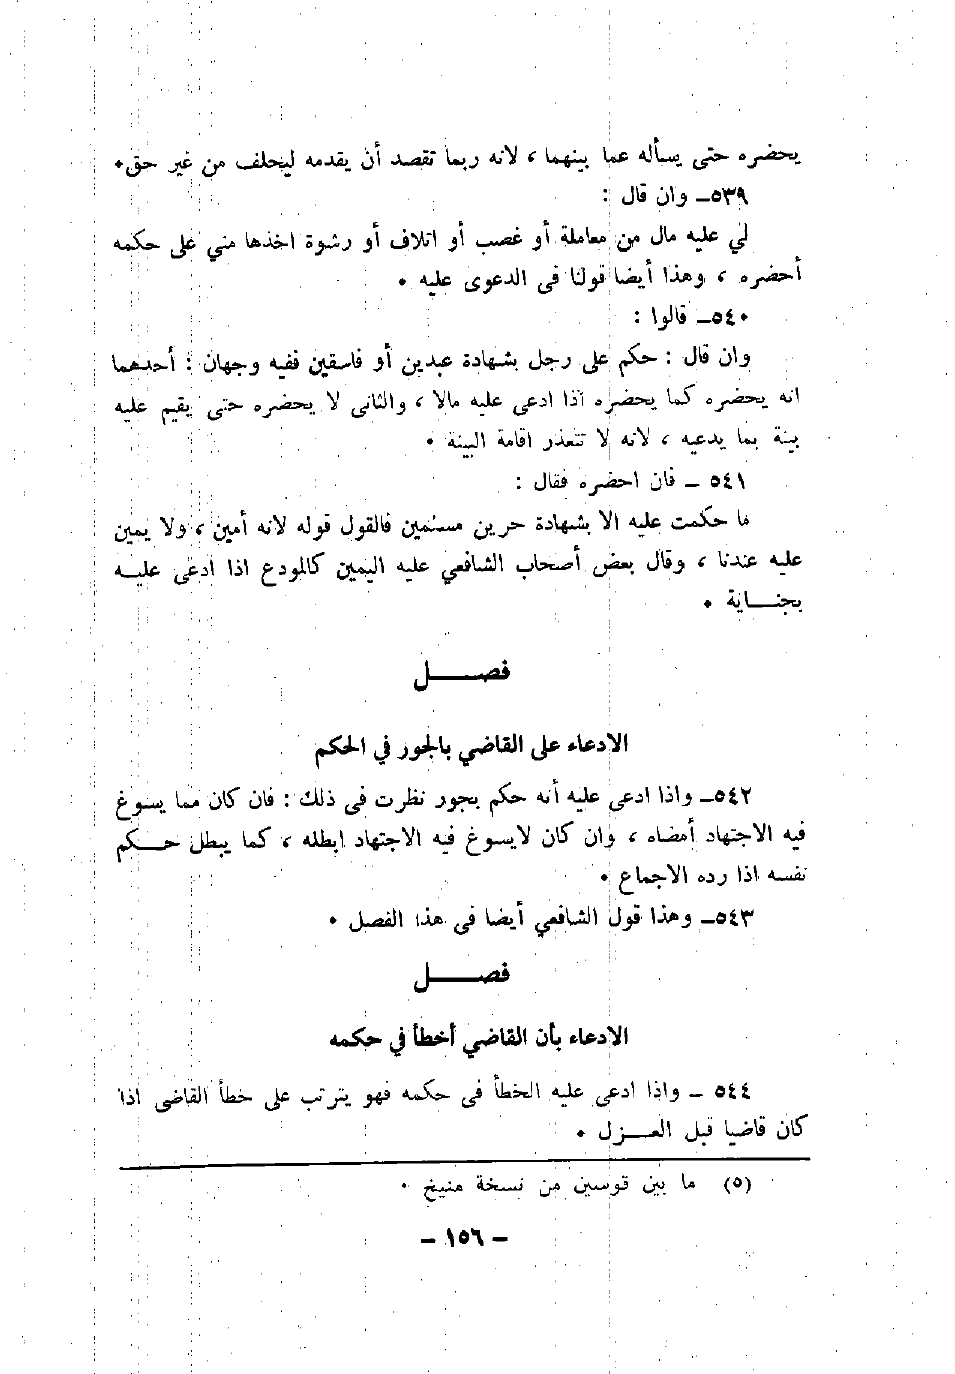 يحضره حتى يسأله عما بينهما ، لانه ربما تقصد أن يقدمه ليحلف من غير حق٠
٥٣٩ــ وان قال :
لي عليه مال من معاملة أو غصب أو اتلاف أو رشوة اخذها مني على حكمه
أحضره ، وهذا أيضا قولنا في الدعوى عليه ٠
٥٤٠ــ قالوا :
وان قال : حكم على رجل بشهادة عبدين أو فاسقين ففيه وجهان : أحدهما
انه يحضره كما يحضره اذا ادعى عليه مالا ، والثانى لا يحضره حتى يقيم عليه
بينة بما يدعيه ، لانه لا تتعذر اقامة البينة ٠
٥٤١ ــ فان احضره فقال :
ما حكمت عليه الا بشهادة حرين مسلمين فالقول قوله لانه أمين ، ولا يمين
عليه عندنا ، وقال بعض أصحاب الشافعي عليه اليمين كالمودع اذا ادعى عليــه
بجنـــاية ٠
فصـــــل
الادعاء على القاضي بالجور في الحكم
٥٤٢ــ واذا ادعى عليه أنه حكم بجور نظرت في ذلك : فان كان مما يسوغ
فيه الاجتهاد أمضاه ، وان كان لايسوغ فيه الاجتهاد ابطله ، كما يبطل حـــكم
نفسه اذا رده الاجماع ٠
٥٤٣ــ وهذا قول الشافعي أيضا في هذا الفصل ٠
فصـــــل
الادعاء بأن القاضي أخطأ في حكمه
٥٤٤ ــ واذا ادعى عليه الخطأ في حكمه فهو يترتب على خطأ القاضى اذا
كان قاضيا قبل العـــزل ٠
(٥) ما بين قوسين من نسخة منيخ ٠
ــ ١٥٦ ــ